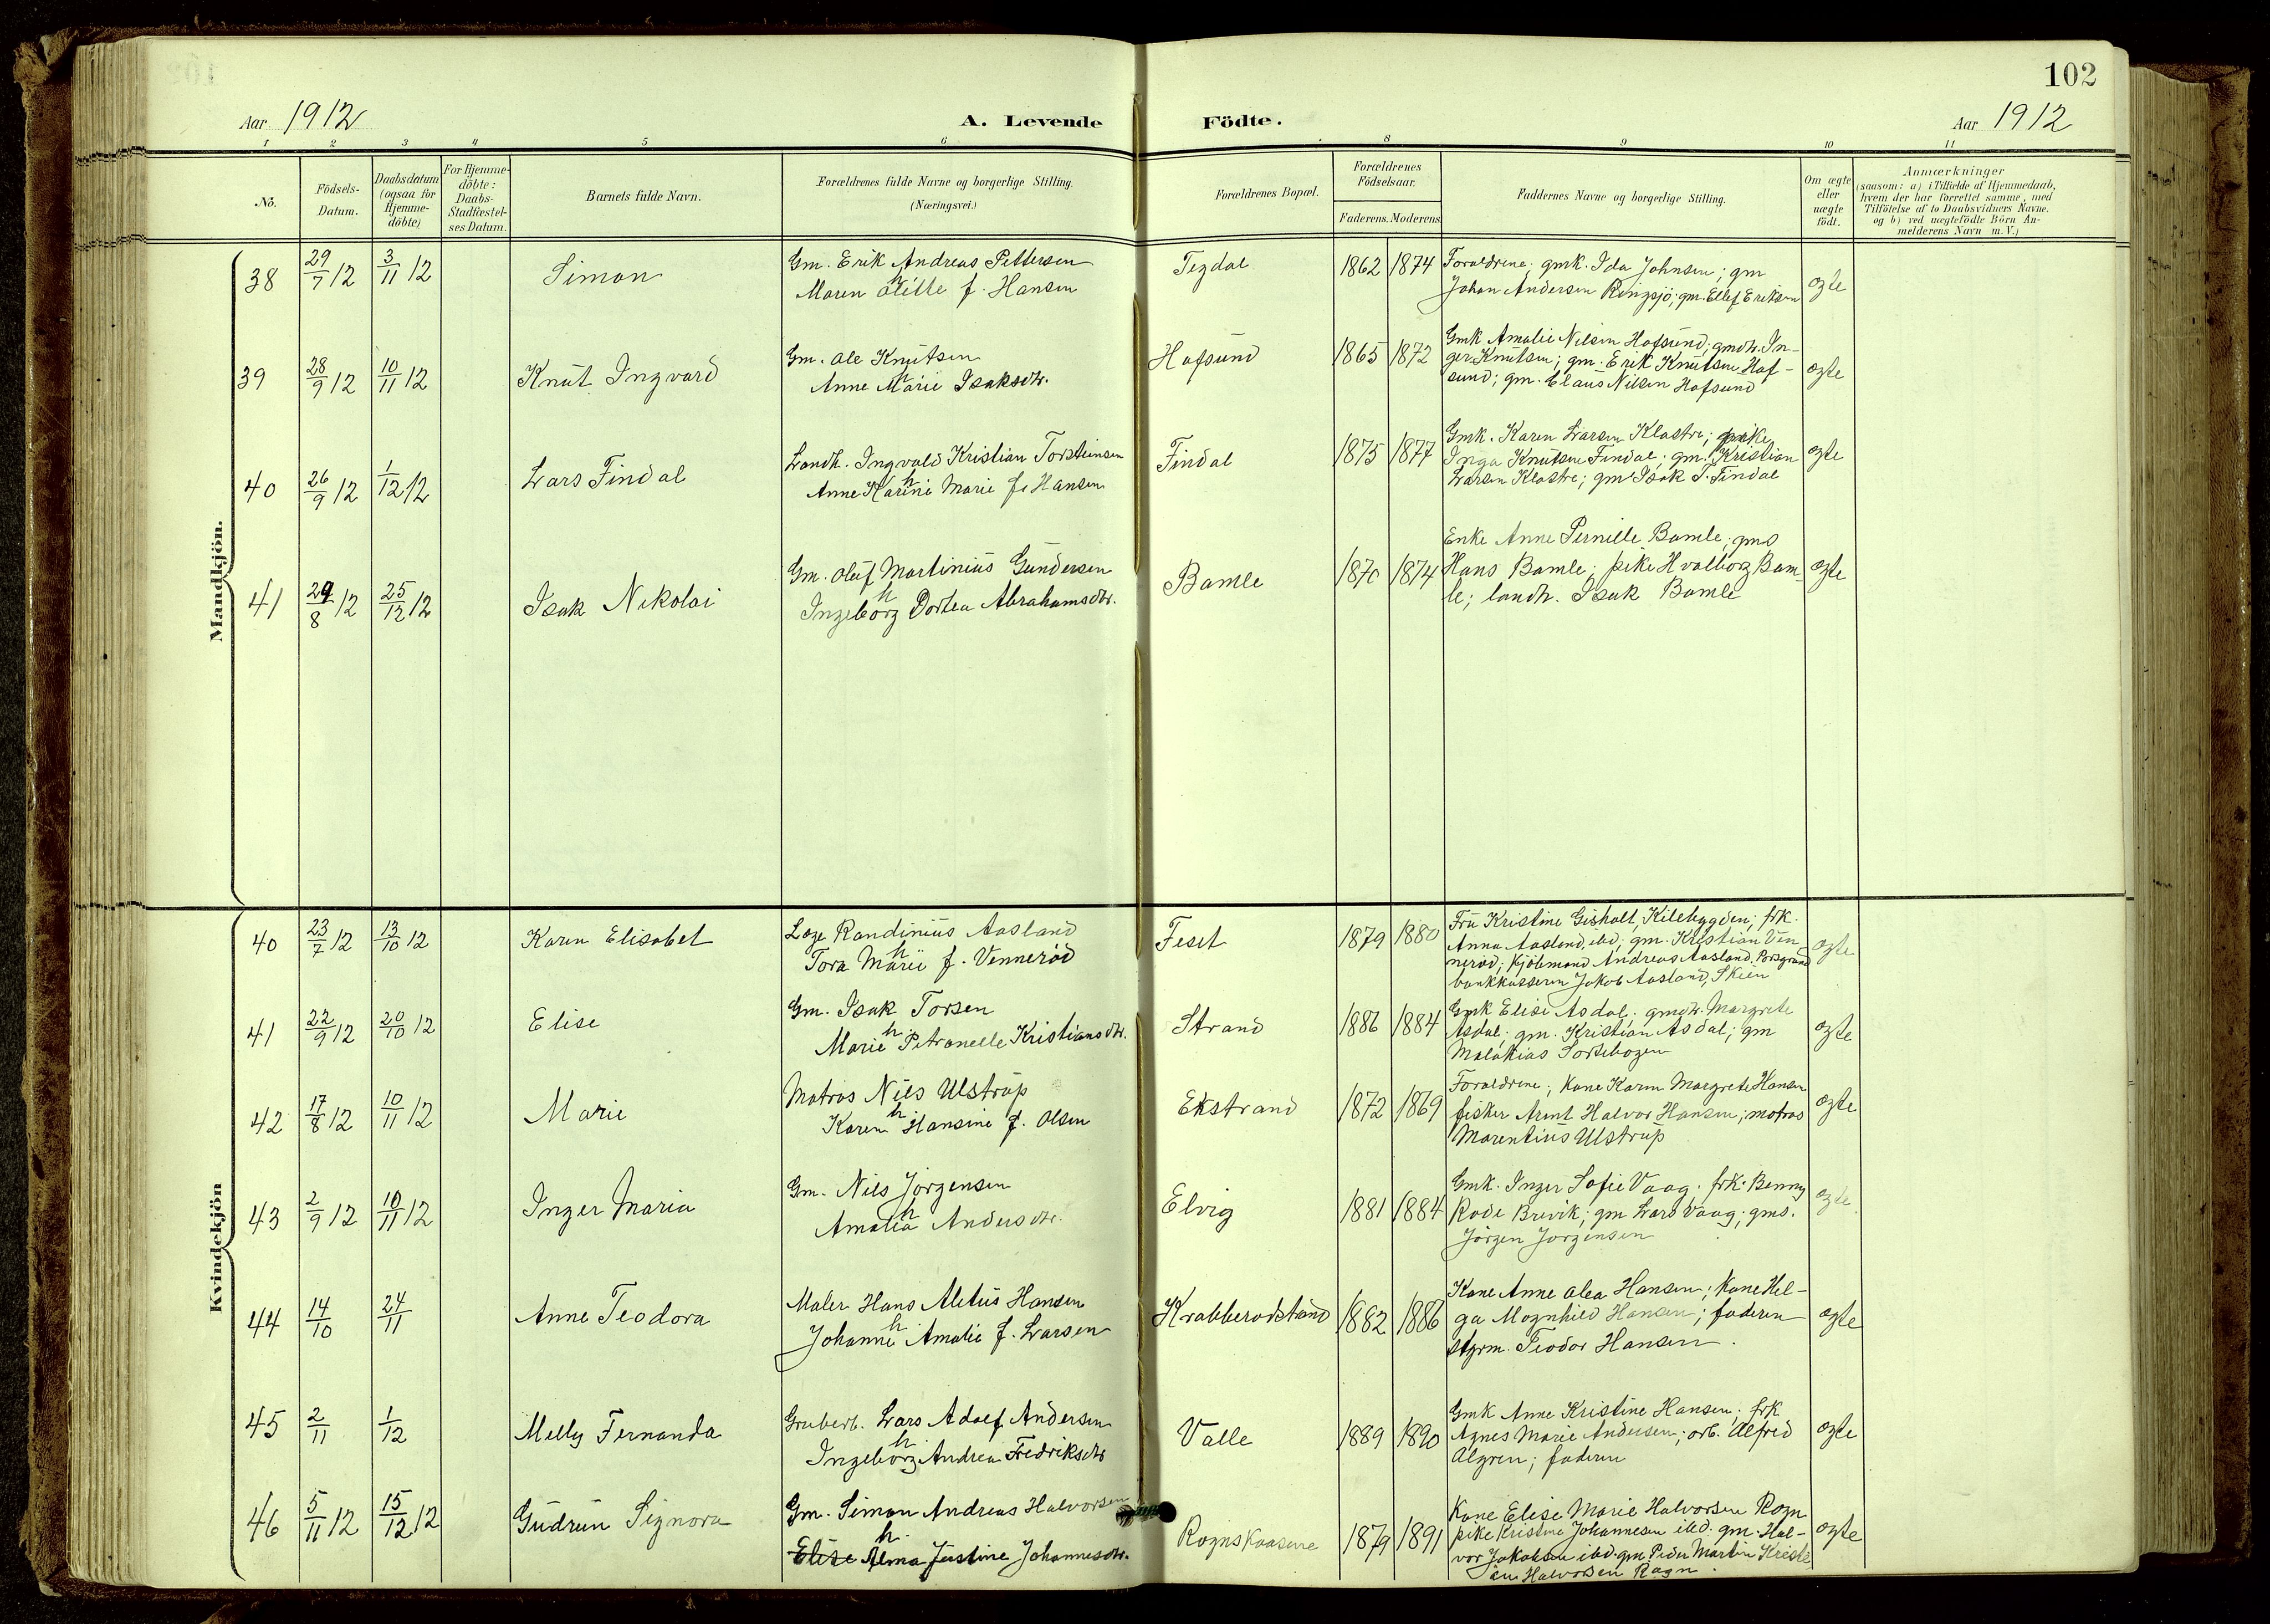 102
Aar 1912
A. Levende Födte.
Aar 1912
1 2 3 4 5 6 8 9 10 11
No.
Födsels-
Datum.
Daabsdatum
(ogsaa for
Hjemme-
döbte)
For Hjemme-
döbte:
Daabs-
Stadfæstel-
ses Datum.
Barnets fulde Navn.
Forældrenes fulde Navne og borgerlige Stilling.
(Næringsvei.)
Forældrenes Bopæl.
Forældrenes
Födselsaar.
Faderens. Moderens
Faddernes Navne og borgerlige Stilling.
Om ægte
eller
uægte
födt.
Anmærkninger
(saasom: a) i Tilfælde af Hjemmedaab,
hvem der har forrettet samme, med
Tilföielse af to Daabsvidners Navne.
og b) ved uægtefödte Börn An-
melderens Navn m. V.)
Mandkjön.
38 29/7 12 3/11 12 Simon
Gm. Erik Andreas Pettersen
h
Maren Olette f. Hansen
Tegdal 1862 1874
Forældrene; gmk. Ida Johnsen; gm
Johan Andersen Ringsjö; gm. Ellef Eriksen
ægte
39 28/9 12 10/11 12 Knut Ingvard
Gm. Ole Knutsen
h
Anne Marie Isaksdtr.
Hafsund 1865 1872
Gmk Amalie Nilsen Hafsund; gmdtr. In-
ger Knutsen; gm. Erik Knutsen Haf-
sund; gm. Claus Nilsen Hafsund
ægte
40 26/9 12 1/12 12 Lars Findal
Landh. Ingvald Kristian Torsteinsen
h
Anne Karine Marie f. Hansen
Findal 1875 1877
Gmk. Karen Larsen Klastre; pike
Inga Knutsen Findal; gm. Kristian
Larsen Klastre; gm Isak T. Findal
ægte
41 29/8 12 25/12 12 Isak Nikolai
Gm. Oluf Martinius Gundersen
h
Ingeborg Dortea Abrahamsdtr.
Bamle 1870 1874
Enke Anne Pernille Bamle; gms
Hans Bamle; pike Hvalborg Bam-
le; landh. Isak Bamle
ægte
Kvindekjön
40 23/7 12 13/10 12 Karen Elisabet
Læge Randinius Aasland
h
Tora Marie f. Venneröd
Feset 1879 1880
Fru Kristine Gisholt, Kilebygden; frk.
Anna Aasland, ibd; gm. Kristian Ven-
neröd; Kjöbmand Andreas Aasland, Porsgrund
bankkasserer Jakob Aasland, Skien
ægte
41 22/9 12 20/10 12 Elise
Gm. Isak Torsen
h
Marie Petronelle Kristiansdtr.
Strand 1886 1884
Gmk Elise Asdal; gmdtr. Margrete
Asdal; gm. Kristian Asdal; gm
Malakias Sortebogen
ægte
42 17/8 12 10/11 12 Marie
Matros Nils Ulstrup
h
Karen Hansine f. Olsen
Ekstrand 1872 1869
Forældrene; Kone Karen Margrete Hansen
fisker Arent Halvor Hansen; matros
Marentius Ulstrup
ægte
43 2/9 12 10/11 12 Inger Maria
Gm. Nils Jörgensen
h
Amalia Andersdtr.
Elvig 1881 1884
Gmk. Inger Sofie Vaag. frk. Benny
Rode Brevik; gm Lars Vaag; gms.
Jörgen Jörgensen
ægte
44 14/10 24/11 Anne Teodora
Maler Hans Aletus Hansen
h
Johanne Amalie f. Larsen
Krabberödstrand 1882 1886
Kone Anne Olea Hansen; Kone Hel-
ga Magnhild Hansen; faderen
styrm. Teodor Hansen.
ægte
45 2/11 1/12 Melly Fernanda
Grubearb. Lars Adolf Andersen
h
Ingeborg Andrea Fredriksdtr
Valle 1889 1890
Gmk Anne Kristine Hansen; frk
Agnes Marie Andersen; arb. Alfred
Algren; faderen
ægte
46 5/11 12 15/12 12 Gudrun Signora
Gm. Simon Andreas Halvorsen
h
Elise Alma Justine Johannesdtr.
Rognskaasene 1879 1891
Kone Elise Marie Halvorsen Rogn
pike Kristine Johannesen ibd. gm. Hal-
vor Jakobsen ibd. gm Peder Martin Kristi
an Halvorsen Rogn.
ægte